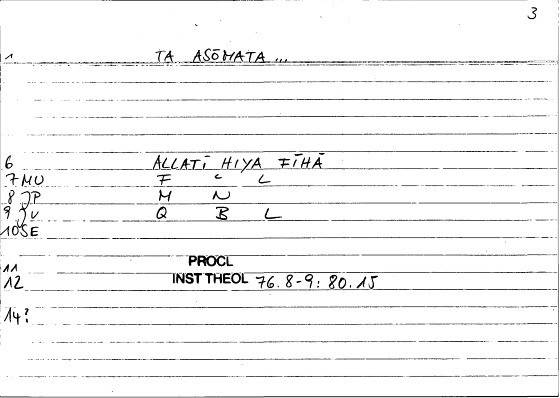 3
1 TA ASŌMATA ...
6 ALLATĪ HIYA FĪHĀ
7 MU F ʿ L
8 JP M N
9 JV Q B L
10 SE
11 PROCL
12 INST THEOL 76.8-9: 80.15
14?